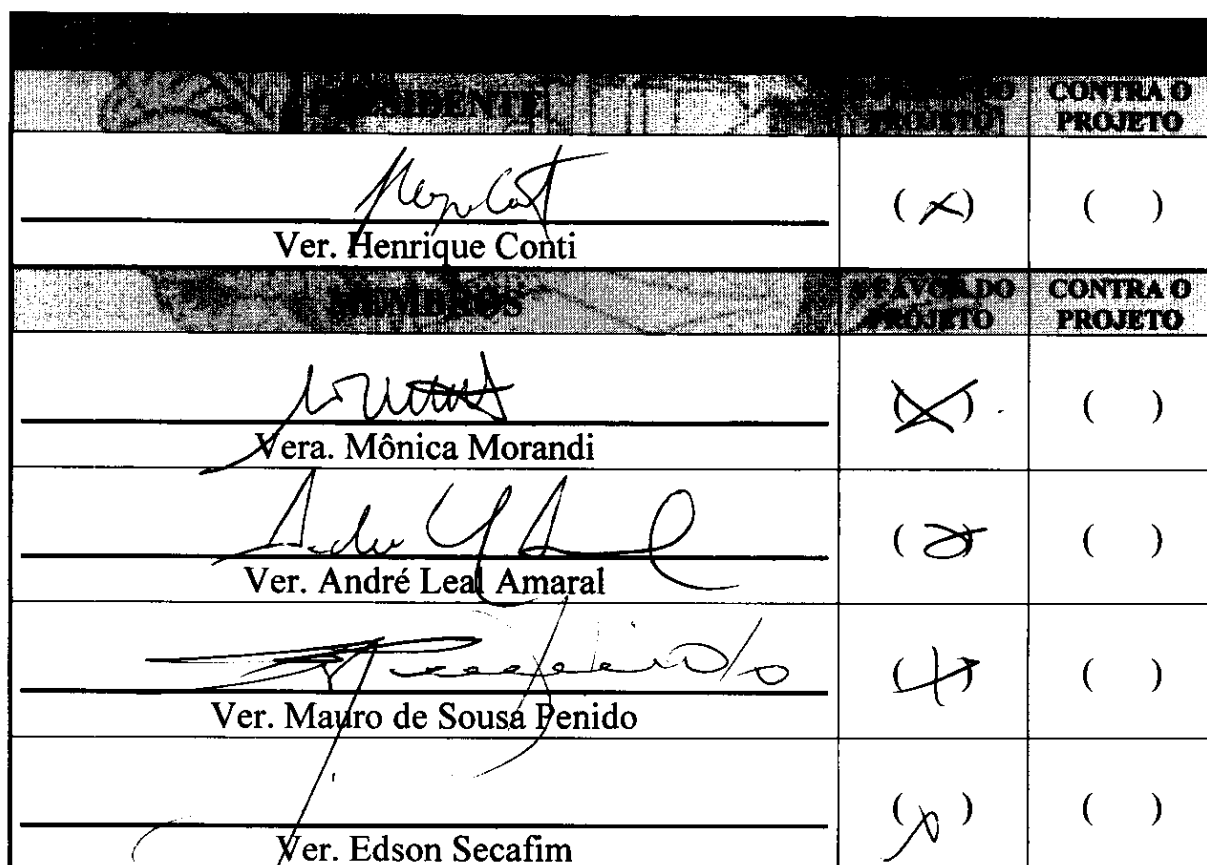 PRESIDENTE A FAVOR DO PROJETO CONTRA O PROJETO
( x ) ( )
Ver. Henrique Conti
MEMBROS A FAVOR DO PROJETO CONTRA O PROJETO
( x ) ( )
Vera. Mônica Morandi
( x ) ( )
Ver. André Leal Amaral
( x ) ( )
Ver. Mauro de Sousa Penido
( x ) ( )
Ver. Edson Secafim